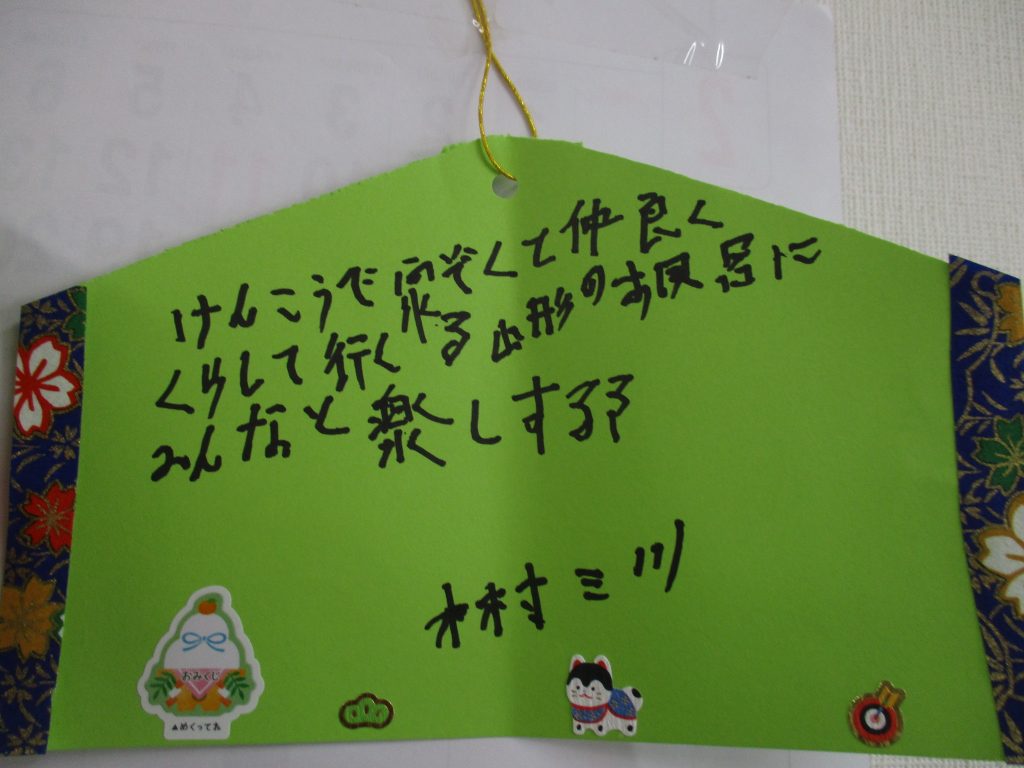 けんこうで家ぞくて仲良く
くらして行くる山形のお風呂に
みんなと楽しする
木村ミツ
おみくじ
▲めくってね